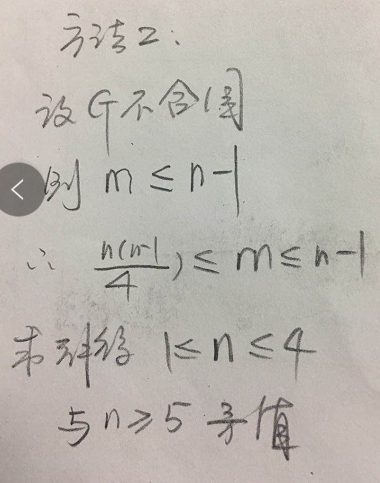 方法2:
设G不含圈
则 m ≤ n-1
∴ n(n-1)/4 ≤ m ≤ n-1
求解得 1≤n≤4
与n≥5矛盾